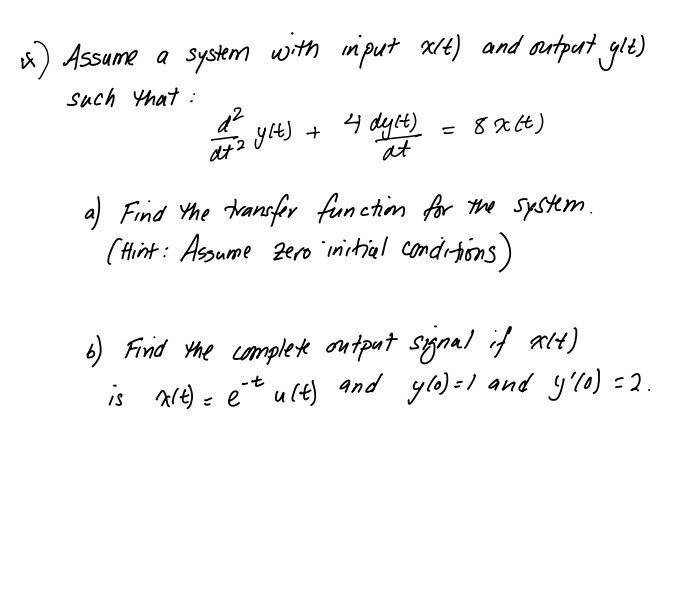 ex) Assume a system with input x(t) and output y(t)
such that :
d²/dt² y(t) + 4 dy(t)/dt = 8 x(t)
a) Find the transfer function for the system.
(Hint : Assume zero initial conditions)
b) Find the complete output signal if x(t)
is x(t) = e^-t u(t) and y(0)=1 and y'(0) = 2.